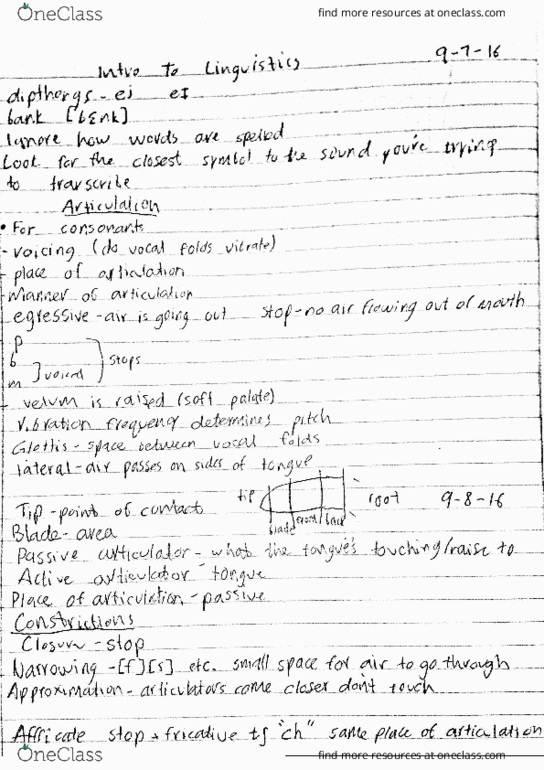 OneClass find more resources at oneclass.com
Intro To Linguistics 9-7-16
dipthergs - ei eɪ
bank [bɛnk]
Ignore how words are spelled
Look for the closest symbol to the sound you're trying
to transcribe
Articulation
• For consonants
- voicing (do vocal folds vibrate)
- place of articulation
- Manner of articulation
egressive - air is going out stop - no air flowing out of mouth
p
b
m ] voiced ) stops
- velum is raised (soft palate)
Vibration frequency determines pitch
Glottis - space between vocal folds
lateral - air passes on sides of tongue
tip root 9-8-16
Tip - point of contact
blade front back
Blade - area
Passive articulator - what the tongue's touching/raise to
Active articulator - tongue
Place of articulation - passive
Constrictions
Closure - stop
Narrowing - [f][s] etc. small space for air to go through
Approximation - articulators come closer don't touch
Affricate stop + fricative tʃ "ch" same place of articulation
OneClass find more resources at oneclass.com